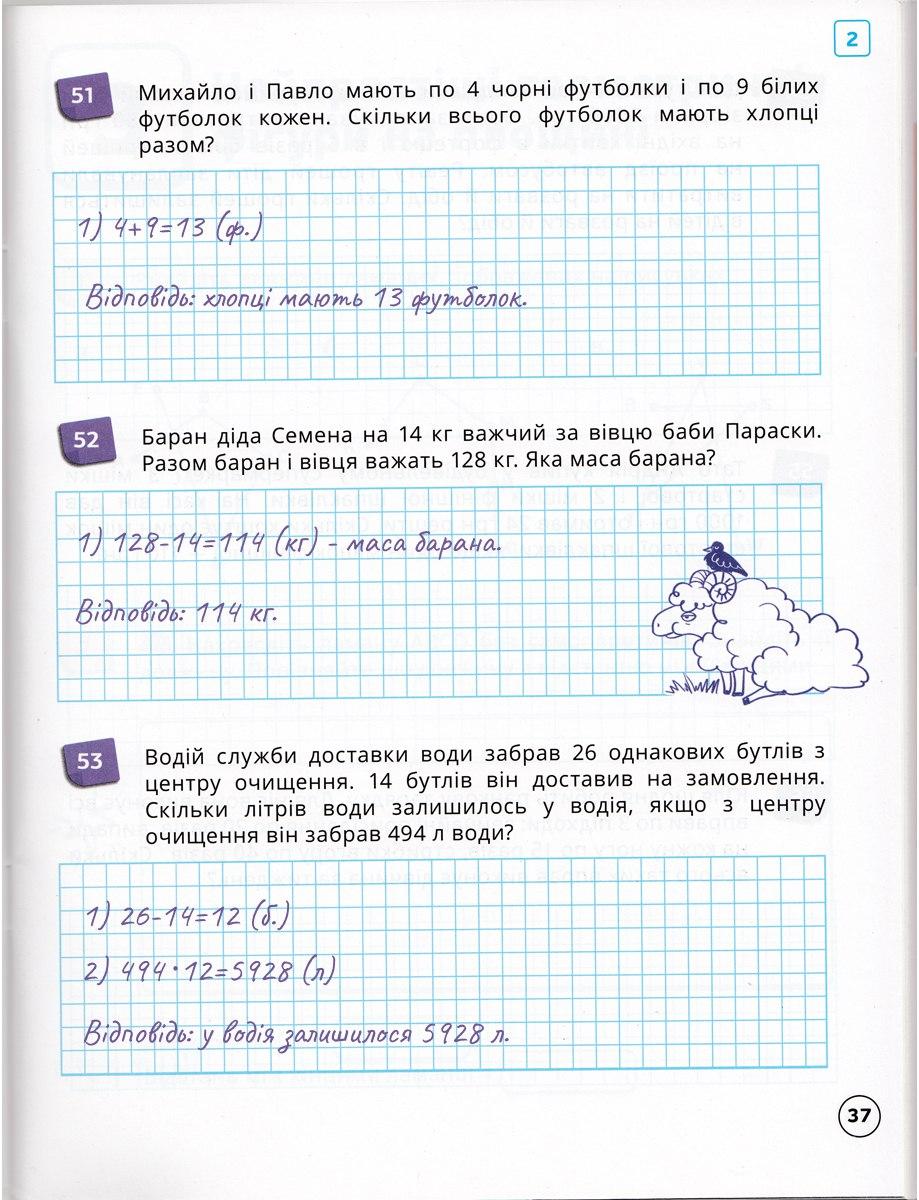 2
51
Михайло і Павло мають по 4 чорні футболки і по 9 білих
футболок кожен. Скільки всього футболок мають хлопці
разом?
1) 4+9=13 (ф.)
Відповідь: хлопці мають 13 футболок.
52
Баран діда Семена на 14 кг важчий за вівцю баби Параски.
Разом баран і вівця важать 128 кг. Яка маса барана?
1) 128-14=114 (кг) - маса барана.
Відповідь: 114 кг.
53
Водій служби доставки води забрав 26 однакових бутлів з
центру очищення. 14 бутлів він доставив на замовлення.
Скільки літрів води залишилось у водія, якщо з центру
очищення він забрав 494 л води?
1) 26-14=12 (б.)
2) 494·12=5928 (л)
Відповідь: у водія залишилося 5928 л.
37